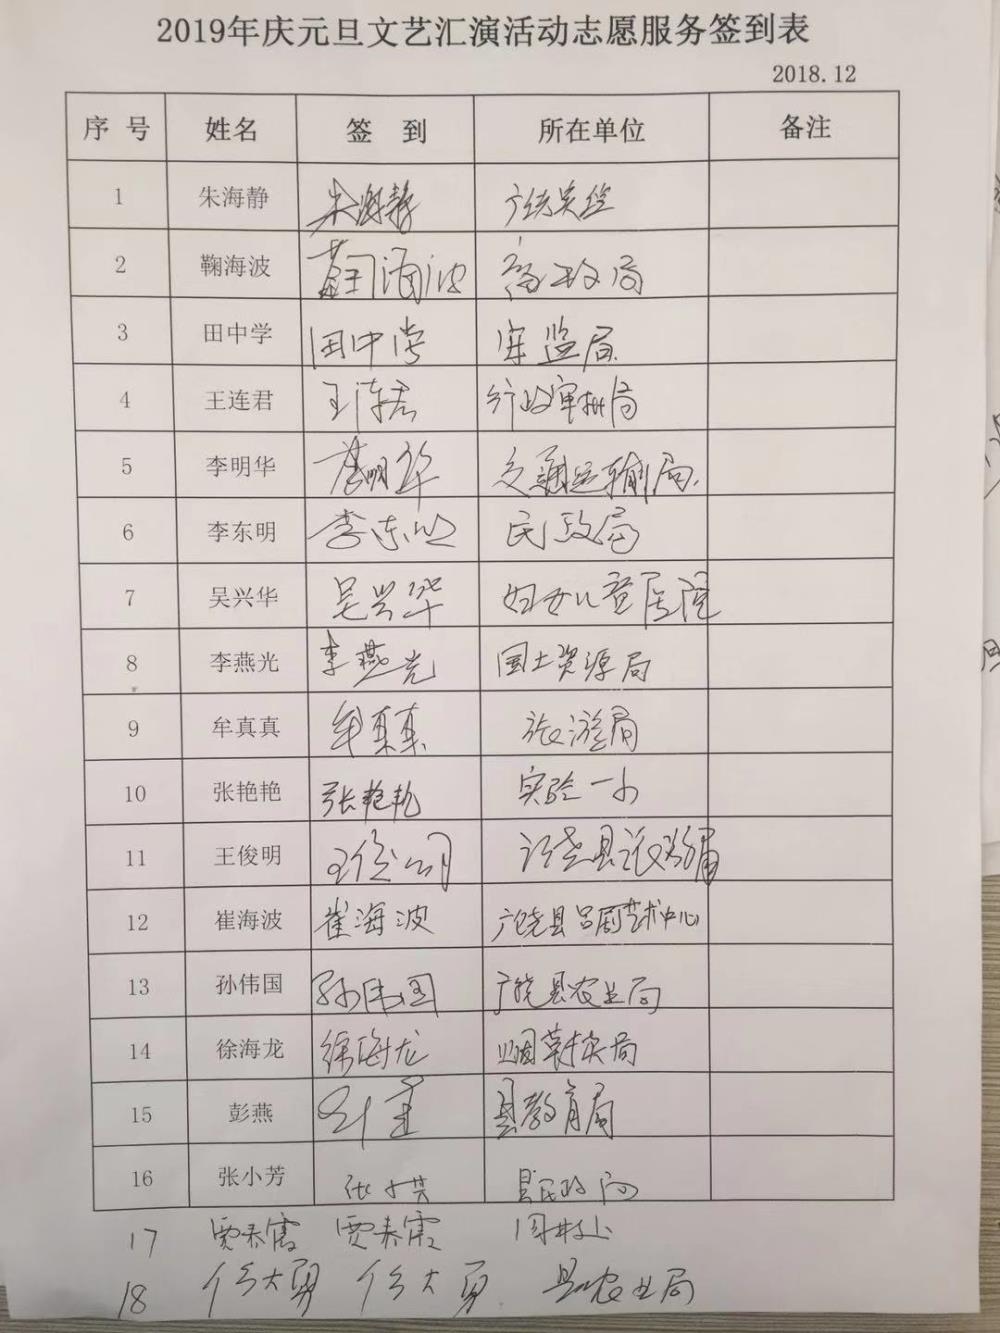 2019年庆元旦文艺汇演活动志愿服务签到表
2018.12
序 号 姓名 签 到 所在单位 备注
1 朱海静 朱海静
2 鞠海波 鞠海波
3 田中学 田中学 安监局
4 王连君 王连君 行政审批局
5 李明华 李明华 交通运输局
6 李东明 李东明 民政局
7 吴兴华 吴兴华 妇女儿童医院
8 李燕光 李燕光 国土资源局
9 牟真真 牟真真 旅游局
10 张艳艳 张艳艳 实验一小
11 王俊明 广饶县
12 崔海波 崔海波 广饶县吕剧艺术中心
13 孙伟国 孙伟国 广饶县农业局
14 徐海龙 徐海龙 烟草专卖局
15 彭燕 县教育局
16 张小芳 县民政局
17 贾春霞 贾春霞
18 任大勇 任大勇 县农业局